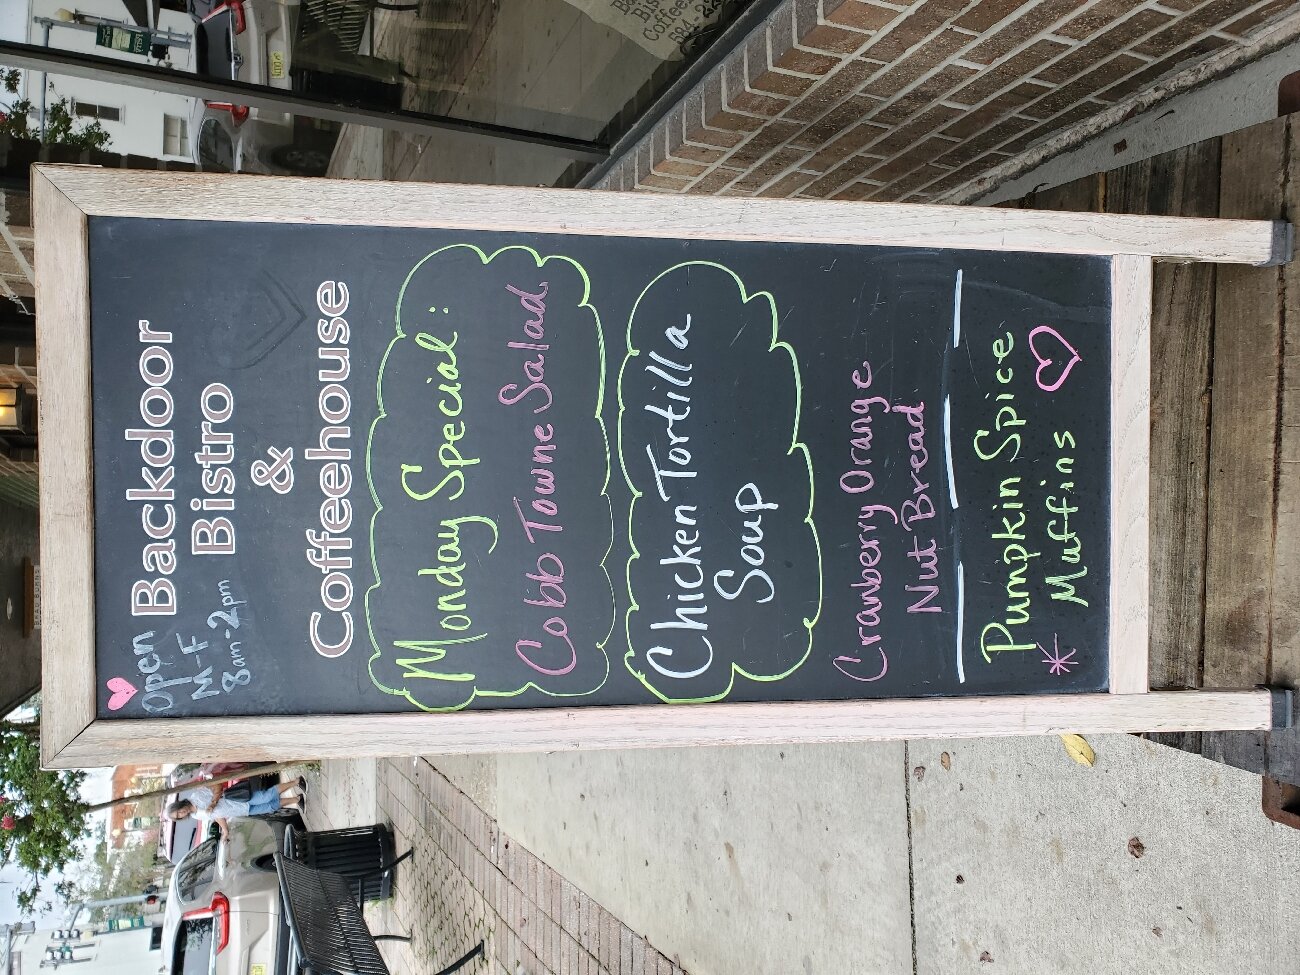 Open
M-F
8am-2pm
Backdoor
Bistro
&
Coffeehouse
Monday Special:
Cobb Towne Salad
Chicken Tortilla
Soup
Cranberry Orange
Nut Bread
Pumpkin Spice
* Muffins